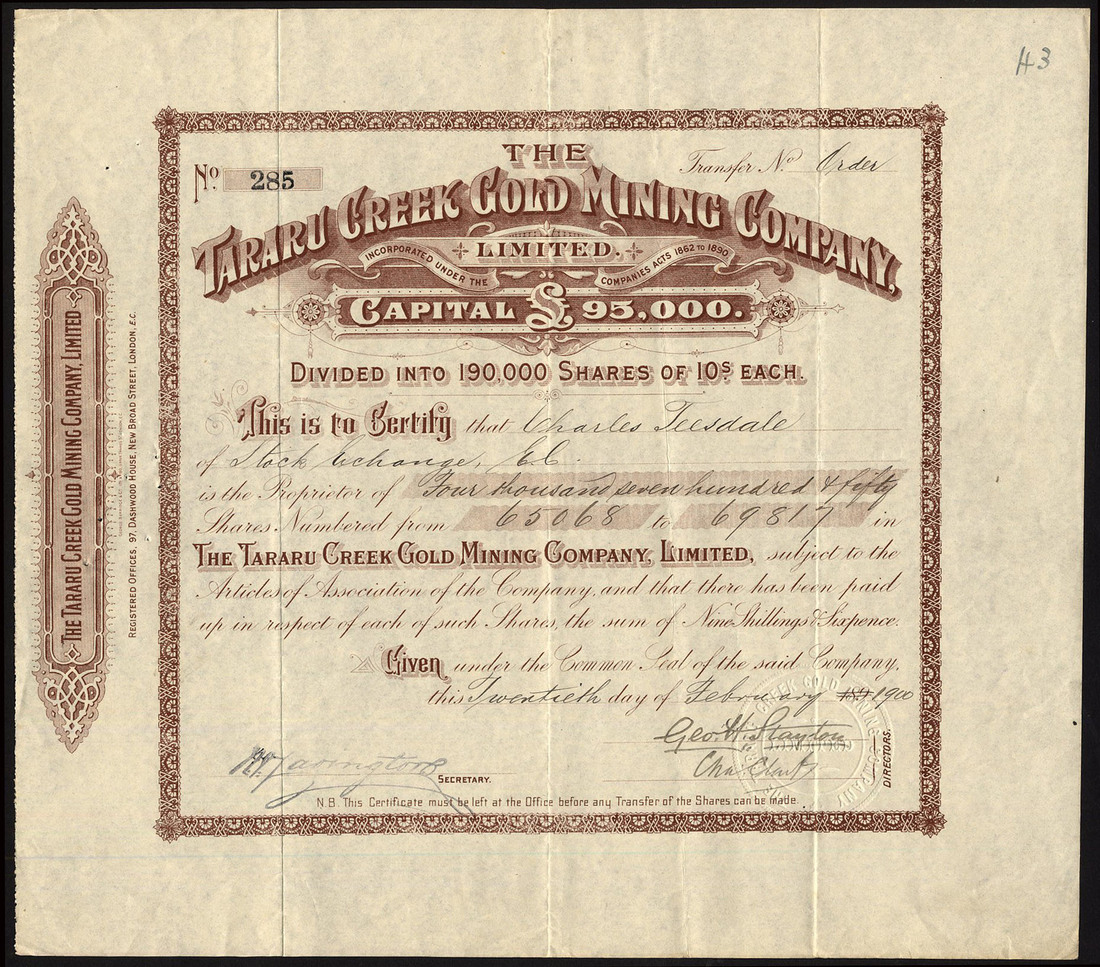 43
THE
Transfer No Order
No 285
TARARU CREEK GOLD MINING COMPANY,
LIMITED.
INCORPORATED UNDER THE COMPANIES ACTS 1862 TO 1890
CAPITAL £ 95,000.
DIVIDED INTO 190,000 SHARES OF 10s EACH.
This is to Certify that Charles Teesdale
of Stock Exchange, E.C.
is the Proprietor of Four thousand seven hundred & fifty
Shares Numbered from 65068 to 69817 in
THE TARARU CREEK GOLD MINING COMPANY, LIMITED, subject to the
Articles of Association of the Company, and that there has been paid
up in respect of each of such Shares, the sum of Nine Shillings & Sixpence.
Given under the Common Seal of the said Company,
this Twentieth day of February 1900
Geo H. Stayton
Cha. Clark
DIRECTORS.
SECRETARY.
N.B. This Certificate must be left at the Office before any Transfer of the Shares can be made.
THE TARARU CREEK GOLD MINING COMPANY, LIMITED
REGISTERED OFFICES, 97, DASHWOOD HOUSE, NEW BROAD STREET, LONDON, E.C.
CREEK GOLD MINING COMPANY